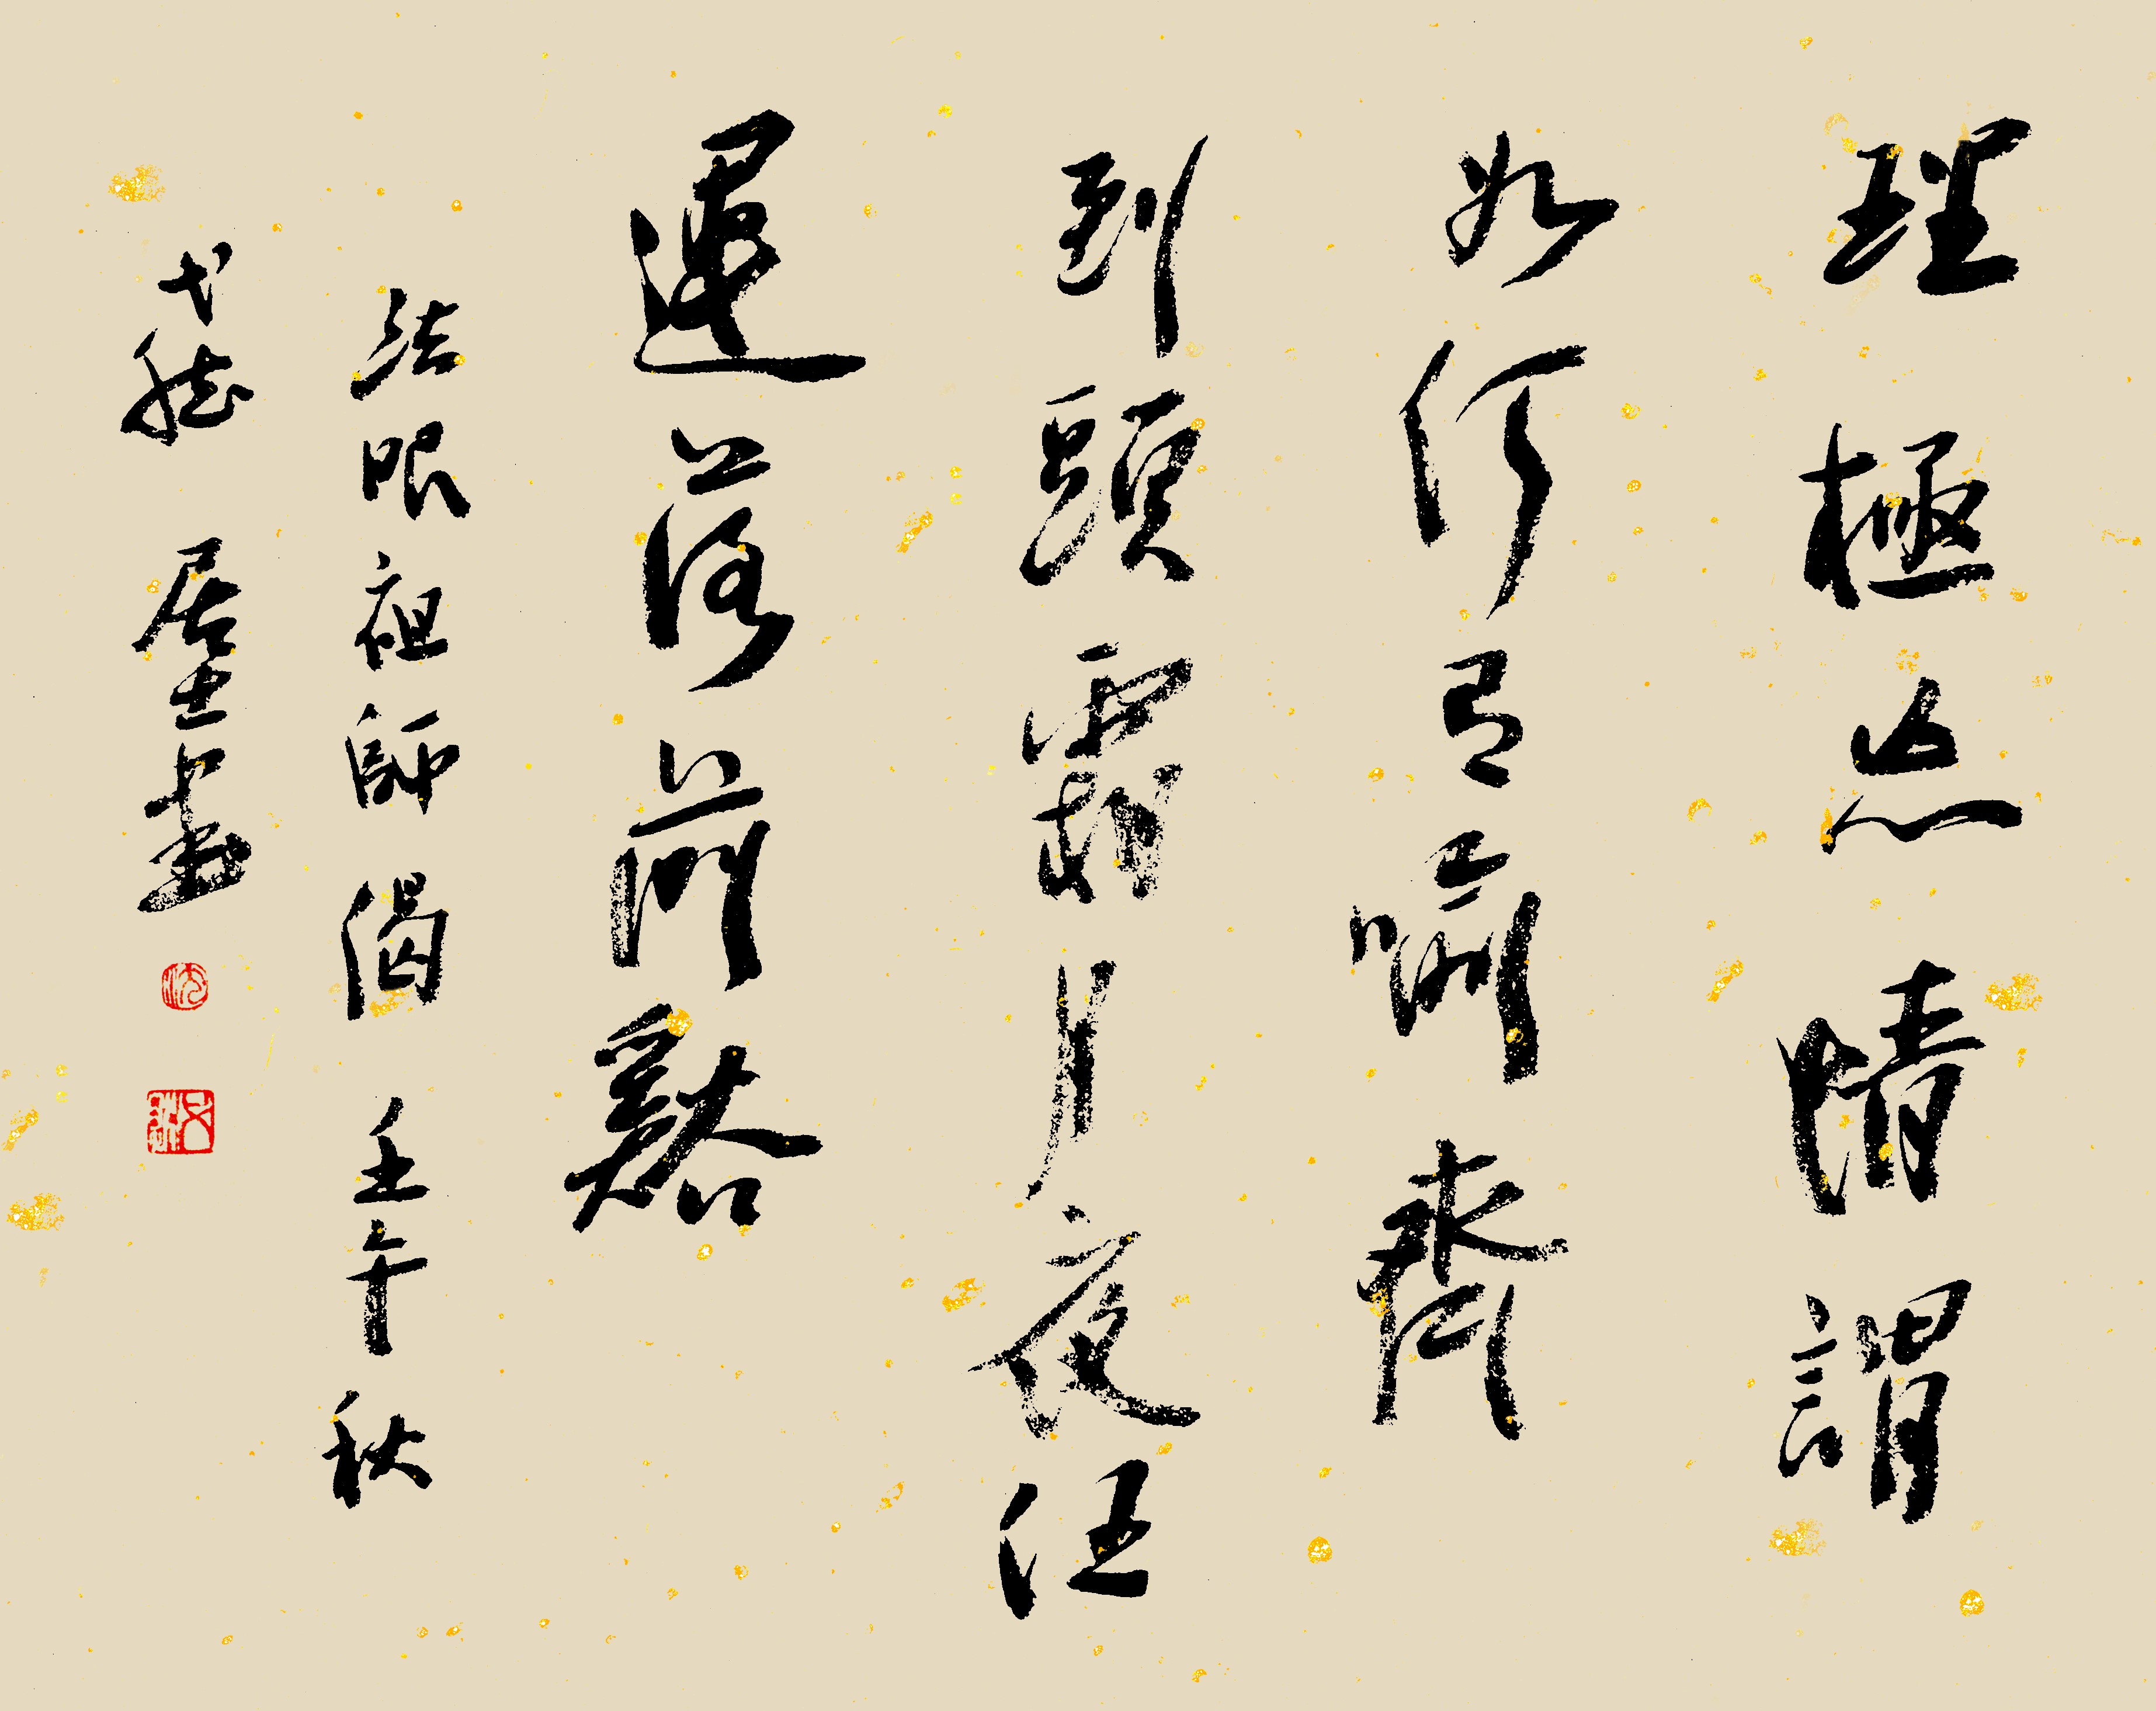 理極忘情謂
如何有喻齊
到頭霜月夜任
運落前谿
法眼祖師偈 壬午秋
居士書